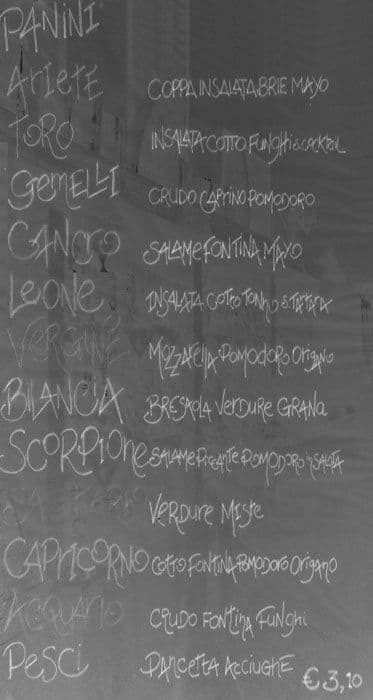 PANINI
ARIETE COPPA INSALATA BRIE MAYO
TORO INSALATA COTTO FUNGHI S.COCKTAIL
GEMELLI CRUDO CAPRINO POMODORO
CANCRO SALAME FONTINA MAYO
LEONE INSALATA COTTO TONNO S.TARTARA
VERGINE MOZZARELLA POMODORO ORIGANO
BILANCIA BRESAOLA VERDURE GRANA
SCORPIONE SALAME PICCANTE POMODORO INSALATA
VERDURE MISTE
CAPRICORNO COTTO FONTINA POMODORO ORIGANO
ACQUARIO CRUDO FONTINA FUNGHI
PESCI PANCETTA ACCIUGHE
€3,10